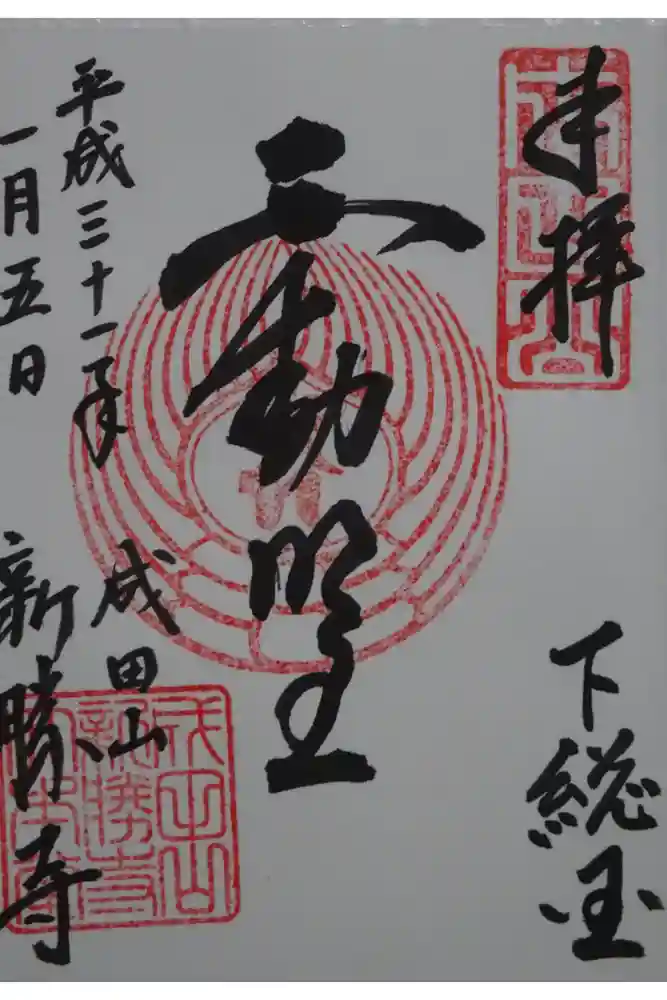 奉拝
下総国
不動明王
平成三十一年
一月五日
成田山
新勝寺
成田山
新勝寺